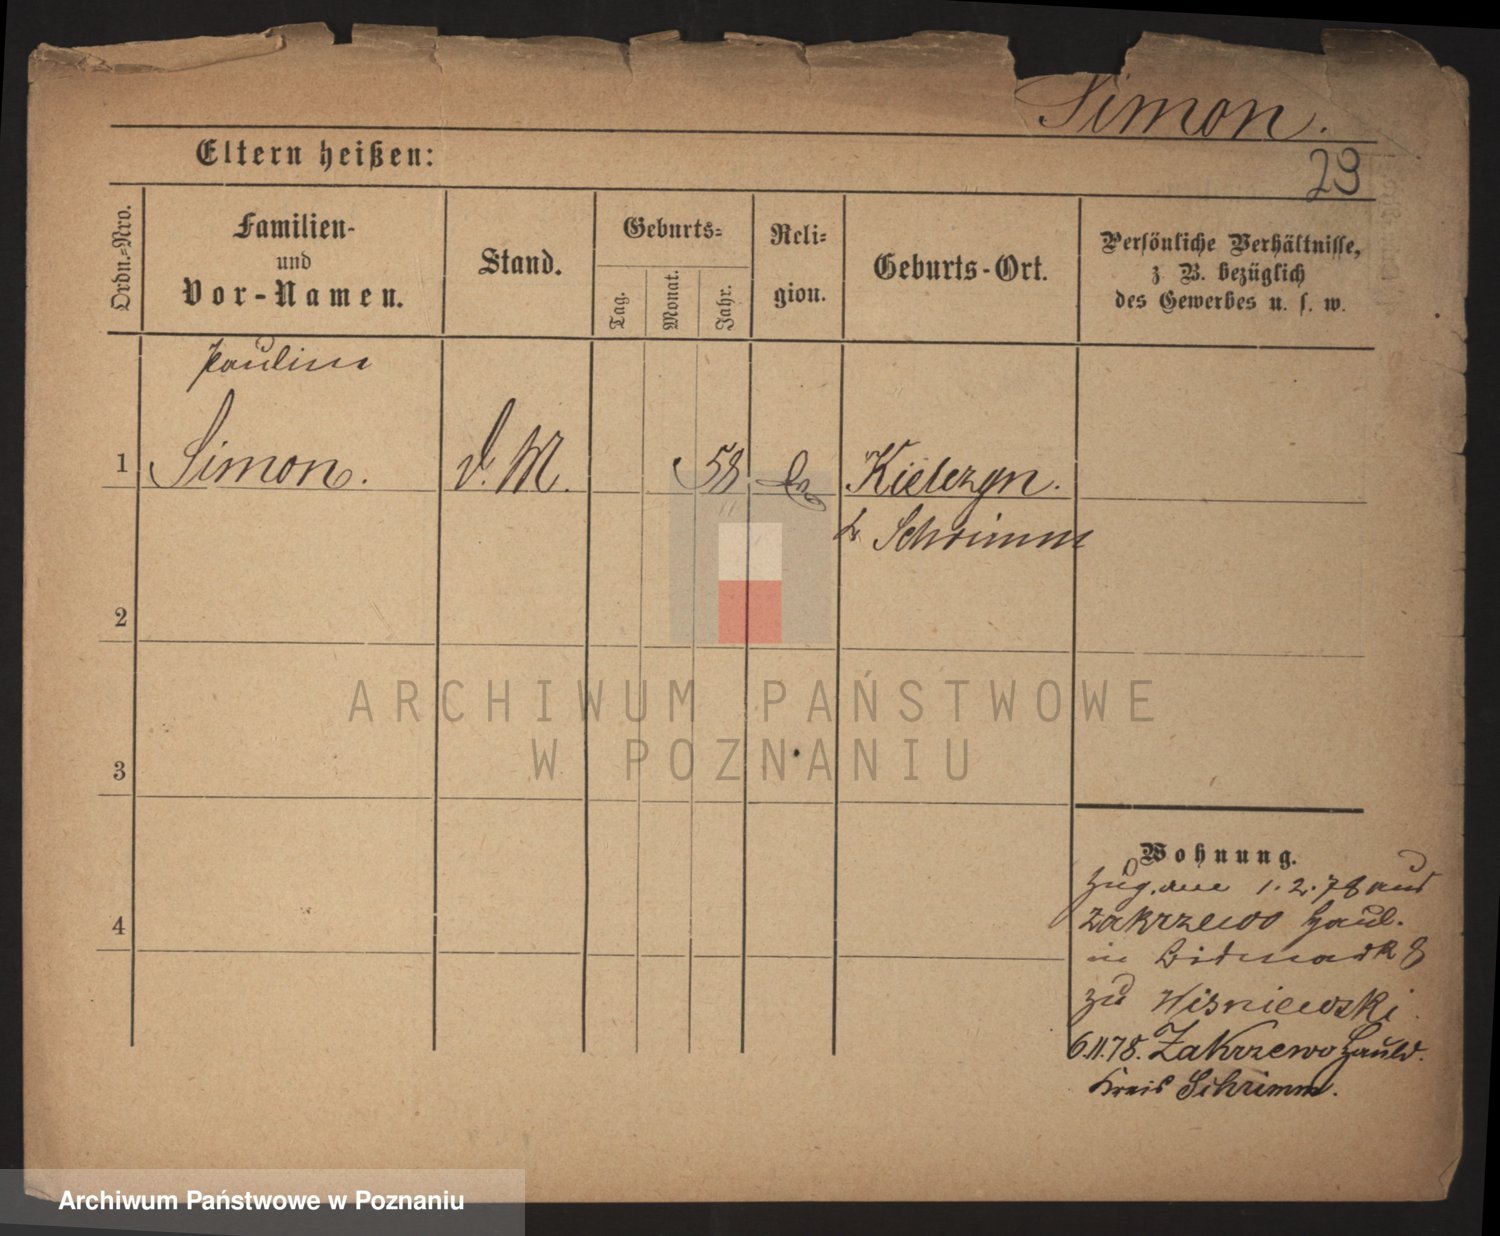 Simon.
Eltern heißen:
23
Ordn.-Nro.
Familien-
und
Vor-Namen.
Stand.
Geburts-
Tag.
Monat.
Jahr.
Reli-
gion.
Geburts-Ort.
Persönliche Verhältnisse,
z B. bezüglich
des Gewerbes u. s. w.
Pauline
1 Simon. d. M. 58 Kielczyn.
Schrimm
2
ARCHIWUM PAŃSTWOWE
W POZNANIU
3
Wohnung.
Zug. 1. 2. 78 aus
Zakrzewo Haul.
in Bismark 8
zu Wisniewski
4
6.11.78. Zakrzewo Hauld.
Kreis Schrimm.
Archiwum Państwowe w Poznaniu